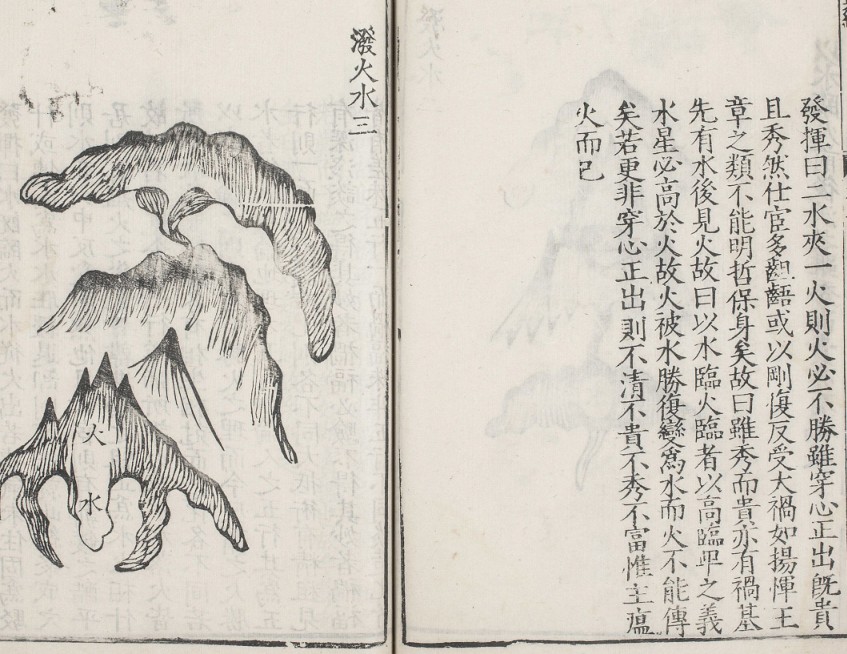 發揮曰二水夾一火則火必不勝雖穿心正出旣貴
且秀然仕宦多齟齬或以剛復反受大禍如揚惲王
章之類不能明哲保身矣故曰雖秀而貴亦有禍基
先有水後見火故曰以水臨火臨者以高臨平之義
水星必高於火故火被水勝復變爲水而火不能傳
矣若更非穿心正出則不清不貴不秀不富惟主瘟
火而已
潑火水三
火
水